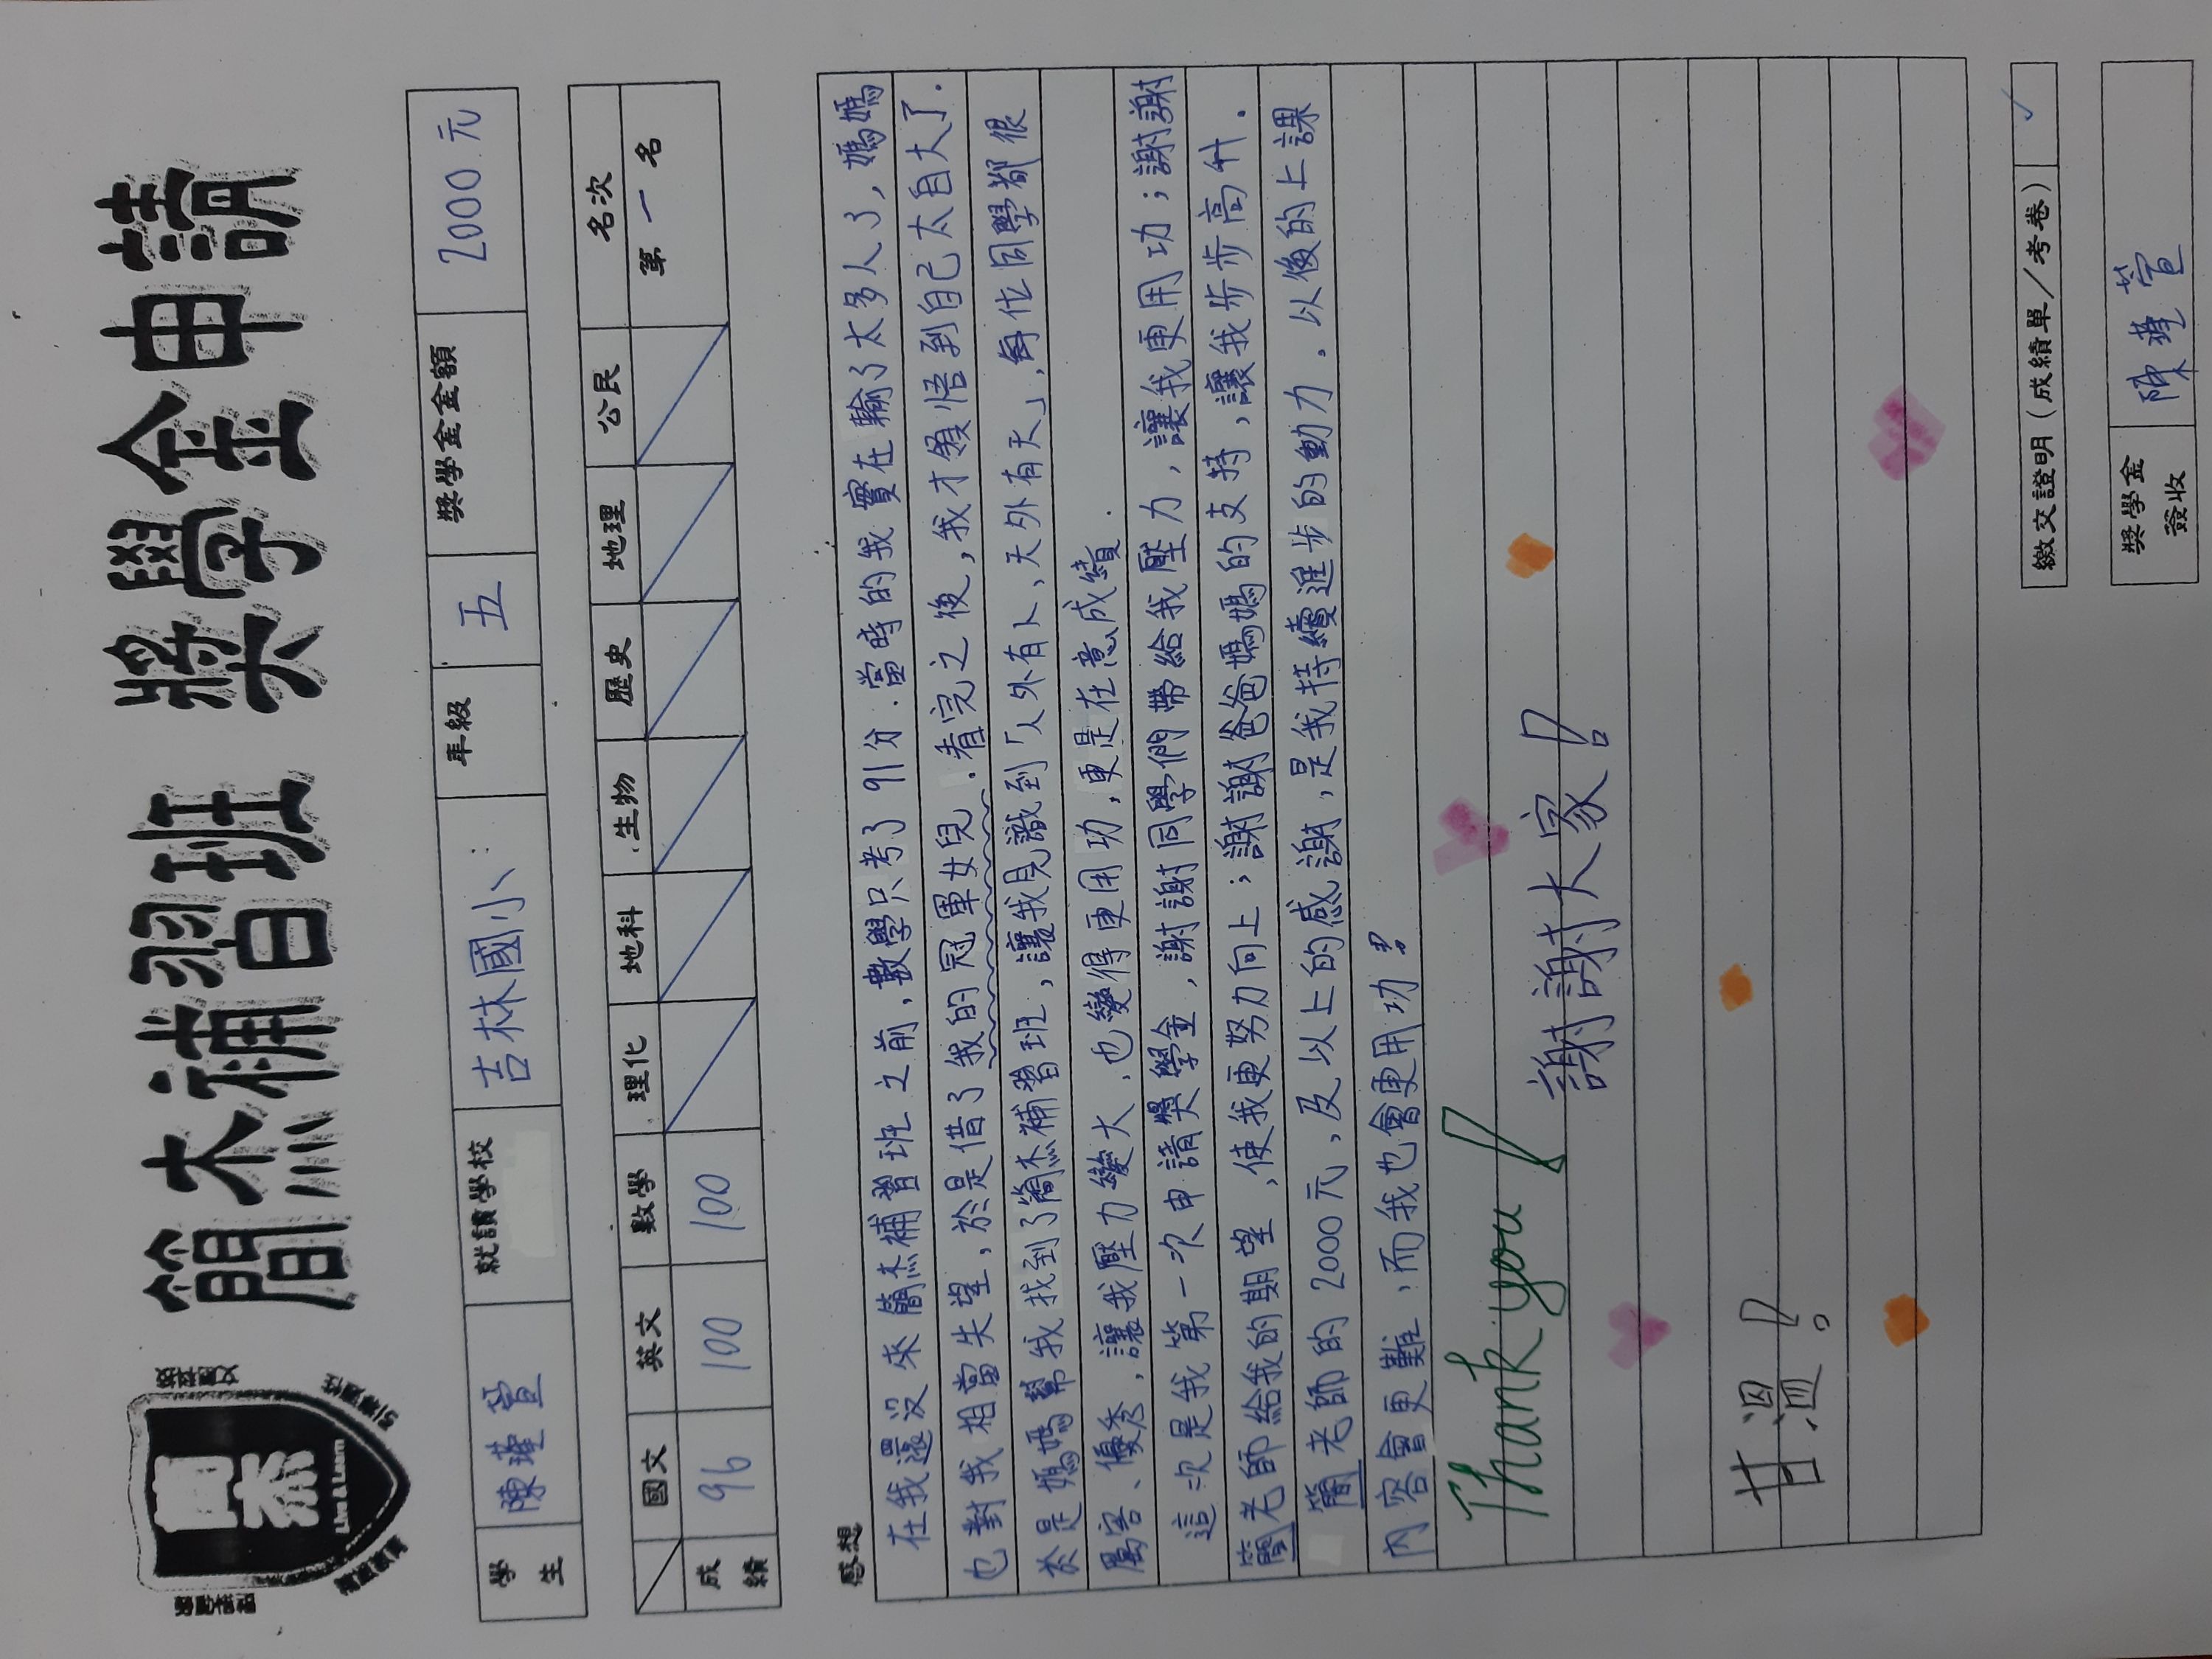 簡杰補習班 獎學金申請
簡杰
Live & Learn
學生 陳瑾萱 就讀學校 吉林國小 年級 五 獎學金金額 2000元
國文 英文 數學 理化 地科 生物 歷史 地理 公民 名次
成績 96 100 100 第一名
感想
在我還沒來簡杰補習班之前,數學只考了91分.當時的我實在輸了太多人了,媽媽
也對我相當失望,於是借了我的冠軍女兒.看完之後,我才領悟到自己太自大了.
於是媽媽幫我找到了簡杰補習班,讓我見識到「人外有人、天外有天」,每位同學都很
厲害、優秀,讓我壓力變大,也變得更用功,更是在意成績.
這次是我第一次申請獎學金,謝謝同學們帶給我壓力,讓我更用功;謝謝
簡老師給我的期望,使我更努力向上;謝謝爸爸媽媽的支持,讓我步步高升.
簡老師的2000元,及以上的感謝,是我持續進步的動力.以後的上課
內容會更難,而我也會更用功!
Thank you!
謝謝大家!
甘溫!
繳交證明(成績單/考卷) ✓
獎學金簽收 陳瑾萱